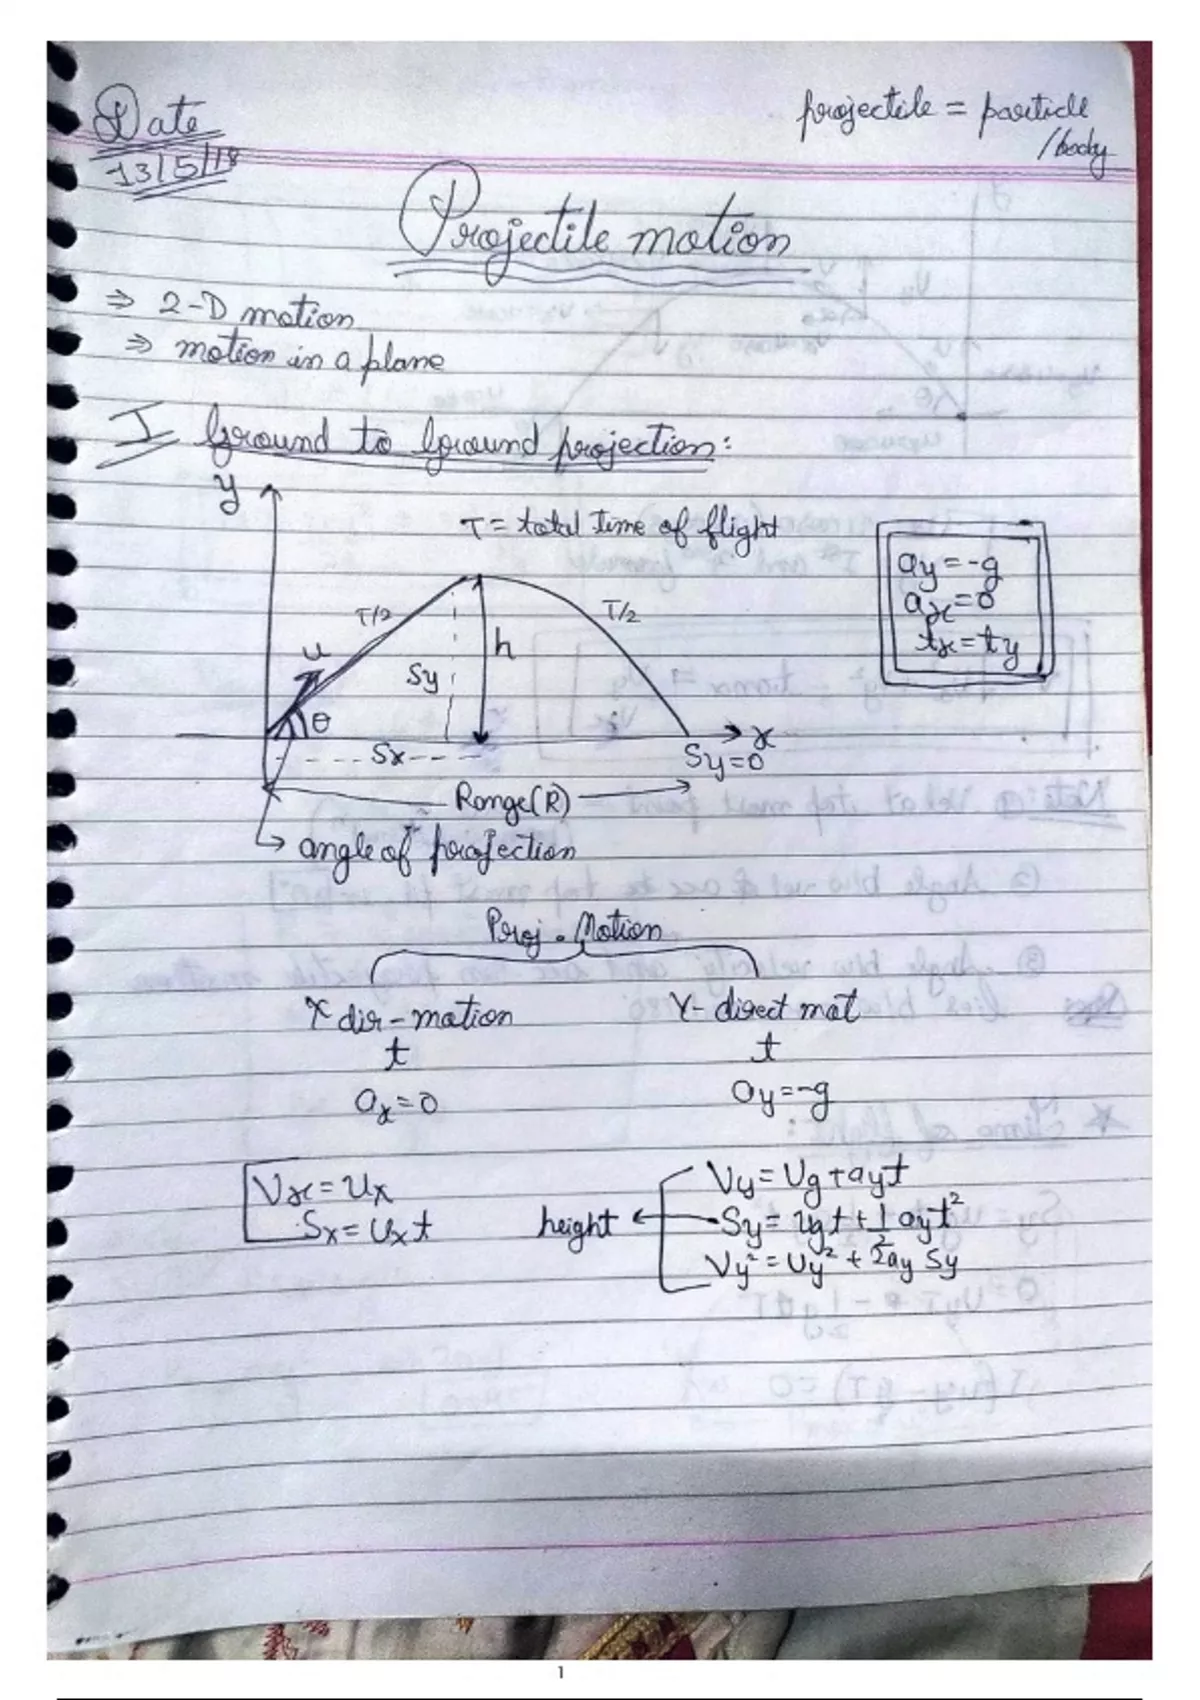 Date
13/5/18
projectile = particle
/body
Projectile motion
⇒ 2-D motion
⇒ motion in a plane
I Ground to Ground projection:
y
T = total time of flight
ay = -g
ax = 0
tx = ty
T/2
T/2
u
h
Sy
θ
Sx
x
Sy = 0
Range(R)
angle of projection
Proj. Motion
X dir-motion
Y-direct mot
t
t
ax = 0
ay = -g
Vx = Ux
Sx = Uxt
height
Vy = Uy + ayt
Sy = Uyt + 1/2 ayt²
Vy² = Uy² + 2ay Sy
1